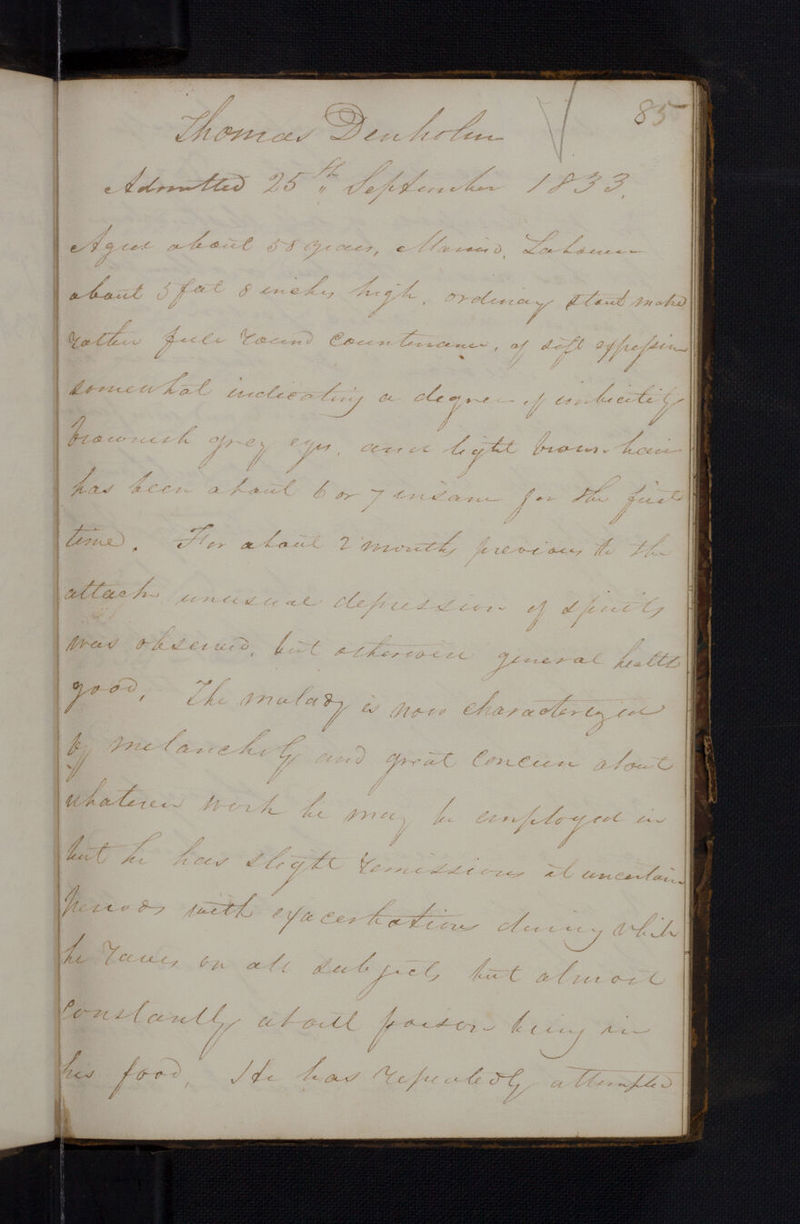 85
Thomas Denholm
Admitted 25th September 1833.
Aged about 58 years, Married, Labourer
about 5 feet 8 inches high, ordinary stout make
rather full round countenance, of soft expression
somewhat indicating a degree of imbecility
brownish grey eyes, and light brown hair
has been about 6 or 7 insane for the first
time. For about 2 months previous to the
attack unusual depression of spirits
was observed, but otherwise general health
good, The malady is now characterized
by melancholy and great concern about
whatever work he may be employed in
but he has slight remissions at uncertain
periods with exacerbations during which
he raves on all subjects but almost
constantly about poison being in
his food, He has repeatedly attempted